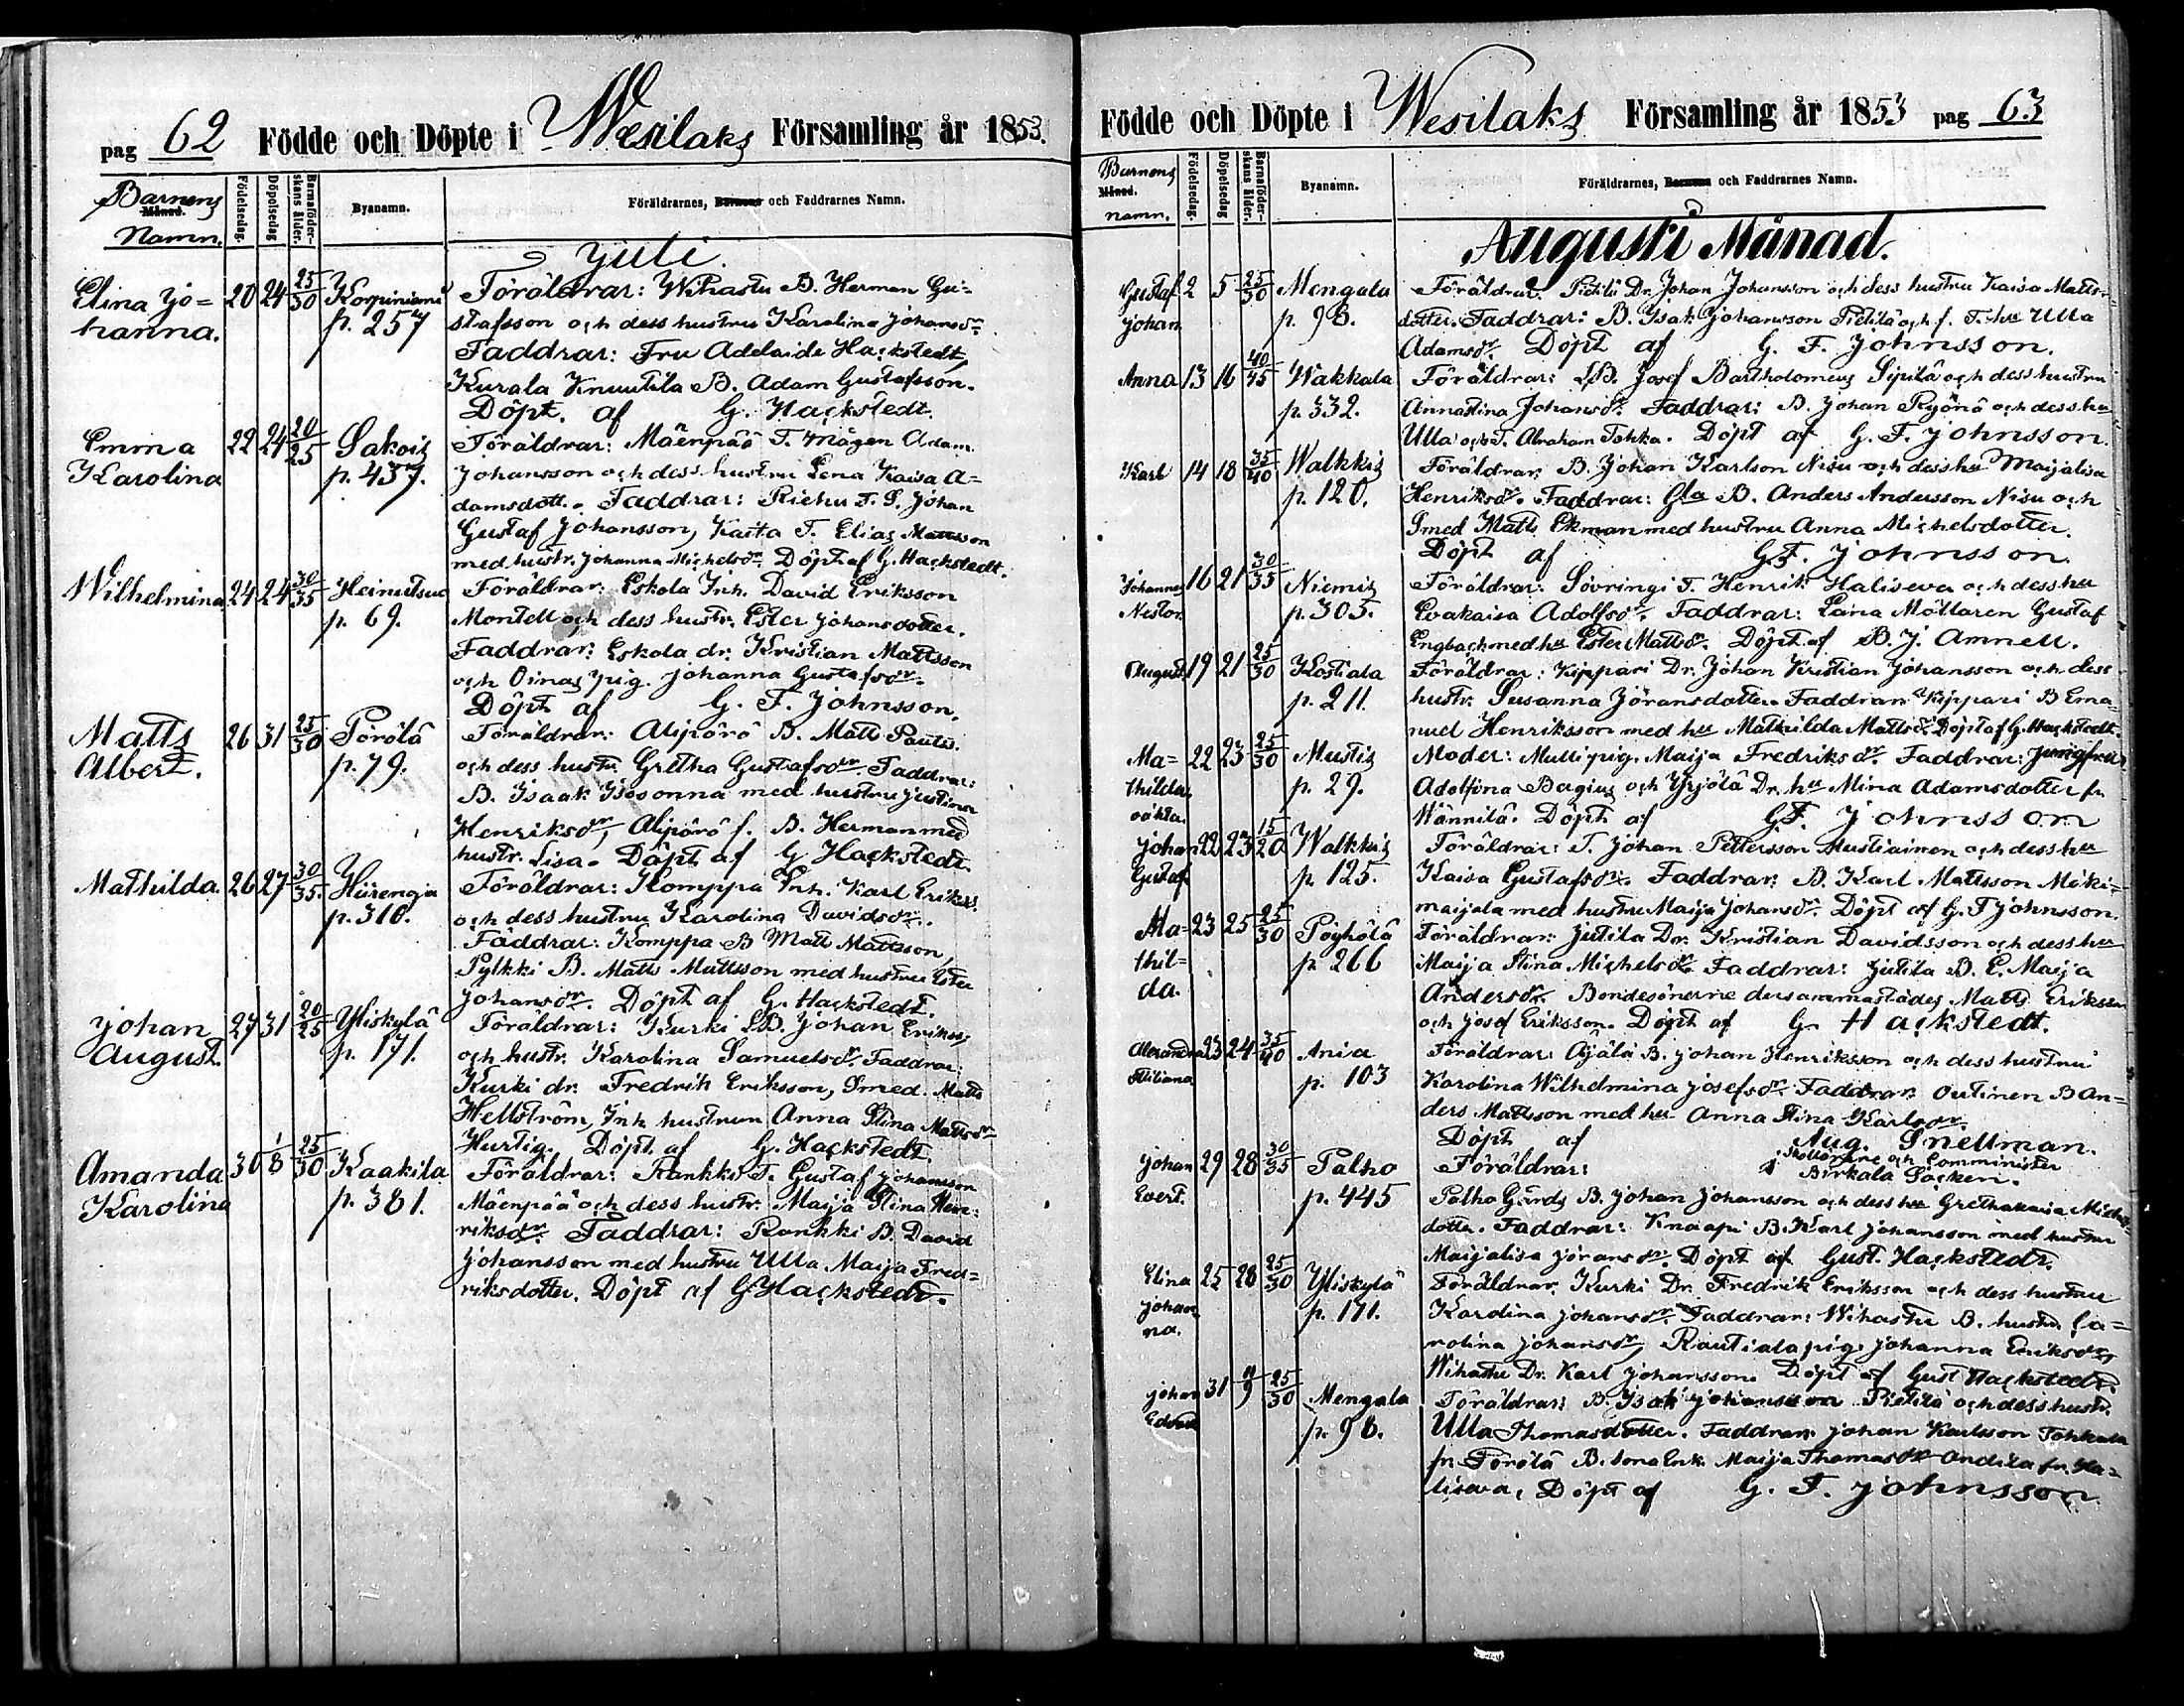 pag 62 Födde och Döpte i Wesilaks Församling år 1853.
Barnens Månad. Namn. Födelsedag. Döpelsedag Barnaföder-skans ålder. Byanamn. Föräldrarnes, Barnens och Faddrarnes Namn.
Juli.
Elina Jo= 20 24 25/30 Korpiniemi Föräldrar: Wihastu B. Herman Gu=
hanna. p. 257 stafsson och dess hustru Karolina Johansdr
Faddrar: Fru Adelaide Hackstedt,
Kurala Knuutila B. Adam Gustafsson.
Döpt. af G. Hackstedt.
Emma 22 24 20/25 Sakois Föräldrar: Mäenpää T. mågen Adam
Karolina p. 437. Johansson och dess hustru Lena Kaisa A=
damsdott. Faddrar: Riehu T. S. Johan
Gustaf Johansson, Kaita T. Elias Mattsson
med hustr. Johanna Michelsdr Döpt af G. Hackstedt.
Wilhelmina 24 24 30/35 Heinutsuo Föräldrar: Eskola Inh. David Eriksson
p. 69. Montell och dess hustr. Ester Johansdotter.
Faddrar: Eskola dr. Kristian Mattsson
och Oinas pig. Johanna Gustafsdr.
Döpt af G. F. Johnsson.
Matts 26 31 25/30 Pörölä Föräldrar: Alipörö B. Matts Pauli.
Albert. p. 79. och dess hustr. Gretha Gustafsdr. Faddrar:
B. Isaak Isosonna med hustru Justina
Henriksdr, Alipörö f. B. Herman med
hustr. Lisa. Döpt af G Hackstedt.
Mathilda. 26 27 30/35. Hürengja Föräldrar: Komppa Inh. Karl Erikss.
p. 310. och dess hustru Karolina Davidsdr.
Faddrar: Komppa B Matt Mattsson,
Pylkki B. Matts Mattsson med hustru Ester
Johansdr. Döpt af G. Hackstedt.
Johan 27 31 20/25 Yliskylä Föräldrar: Kurki LB. Johan Erikss,
August. p. 171. och hustr. Karolina Samuelsdr. Faddrar:
Kurki dr. Fredrik Eriksson, Smed. Matts
Hellström, Inh hustrun Anna Stina Mattsdr
Hurtig. Döpt af G. Hackstedt.
Amanda 30 1/8 25/30 Kaakila Föräldrar: Rankki T. Gustaf Johansson
Karolina p. 381. Mäenpää och dess hustr. Maija Stina Hen=
riksdr. Faddrar: Rankki B. David
Johansson med hustru Ulla Maija Fred=
riksdotter. Döpt af G Hackstedt.
Födde och Döpte i Wesilaks Församling år 1853 pag 63
Barnens Månad. namn. Födelsedag. Döpelsedag Barnaföder-skans ålder. Byanamn. Föräldrarnes, Barnens och Faddrarnes Namn.
Augusti Månad.
Gustaf 2 5 25/30 Mengala Föräldrar. Pietilä Dr. Johan Johansson och dess hustru Kaisa Matts=
Johan p. 98. dotter. Faddrar: B. Isak Johansson Pietilä och f. T. hu Ulla
Adamsdr. Döpt af G. F. Johnsson.
Anna 13 16 40/45 Wakkala Föräldrar: LB. Josef Bartholomeus Sipilä och dess hustru
p. 332. Annastina Johansdr. Faddrar: B. Johan Ryönä och dess hu
Ulla och T. Abraham Tohka. Döpt af G. F. Johnsson.
Karl 14 18 35/40 Walkkis Föräldrar: B. Johan Karlson Nisu och dess hu Maijalisa
p. 120. Henriksdr. Faddrar: Gla B. Anders Andersson Nisu och
Smed Matts Ekman med hustru Anna Michelsdotter.
Döpt af G. F. Johnsson.
Johannes 16 21 30/35 Niemis Föräldrar: Sovringi T. Henrik Haliseva och dess hu
Nestor p. 305. Evakaisa Adolfsdr. Faddrar: Möllaren Gustaf
Engback med hu Ester Mattsdr. Döpt af B. J. Amnell.
August 19 21 25/30 Kostiala Föräldrar: Kippari Dr. Johan Kristian Johansson och dess
p. 211. hustr. Susanna Jöransdotter. Faddrar: Kippari B Ema=
nuel Henriksson med hu Mathilda Mattsdr. Döpt af G. Hackstedt.
Ma= 22 23 25/30 Mustis Moder: Mulli pig. Maija Fredriksdr. Faddrar: Jungfru
thilda p. 29. Adolfina Bergius och Yrjölä Dr. hu Mina Adamsdotter fr.
oäkta. Männilä. Döpt af G. F. Johnsson
Johan 22 23 15/20 Walkkis Föräldrar: T. Johan Pettersson Mustiainen och dess hu
Gustaf p. 125. Kaisa Gustafsdr. Faddrar: B. Karl Mattsson Mäki=
maijala med hustru Maija Johansdr. Döpt af G. F Johnsson.
Ma= 23 25 25/30 Pöyhölä Föräldrar: Jutila Dr. Kristian Davidsson och dess hu
thil= p. 266 Maija Stina Michelsdr. Faddrar: Jutila B. E. Maija
da. Andersdr. Bondesönerne dersammastädes Matts Eriksson
och Josef Eriksson. Döpt af G. Hackstedt.
Alexandra 23 24 35/40 Ania Föräldrar: Äjälä B. Johan Henriksson och dess hustru
Miliana p. 103 Karolina Wilhelmina Josefsdr. Faddrar: Outinen B An=
ders Mattsson med hu Anna Stina Karlsdr.
Döpt af Aug. Snellman.
Skollärare och Comminister
i Birkala Socken.
Johan 29 28 30/35 Palho Föräldrar:
Evert. p. 445 Palho Gårds B. Johan Johansson och dess hu Grethakaisa Michels=
dotter. Faddrar: Knaapi B. Karl Johansson med hustru
Maijalisa Jöransdr. Döpt af Gust. Hackstedt.
Elina 25 28 25/30 Yliskylä Föräldrar. Kurki Dr. Fredrik Eriksson och dess hustru
Johan= p. 171. Karolina Johansdr. Faddrar: Wihastu B. hustru Ca=
na. rolina Johansdr, Rautiala pig. Johanna Eriksdr,
Wihastu Dr. Karl Johansson. Döpt af Gust Hackstedt.
Johan 31 11/9 25/30 Mengala Föräldrar: B. Isak Johansson Pietilä och dess hustr.
Edvard p. 98. Ulla Thomasdotter. Faddrar: Johan Karlsson Tohkala
fr. Pörölä B. Enk. Maija Thomasdr Ondila fr. Ha=
liseva, Döpt af G. F. Johnsson.